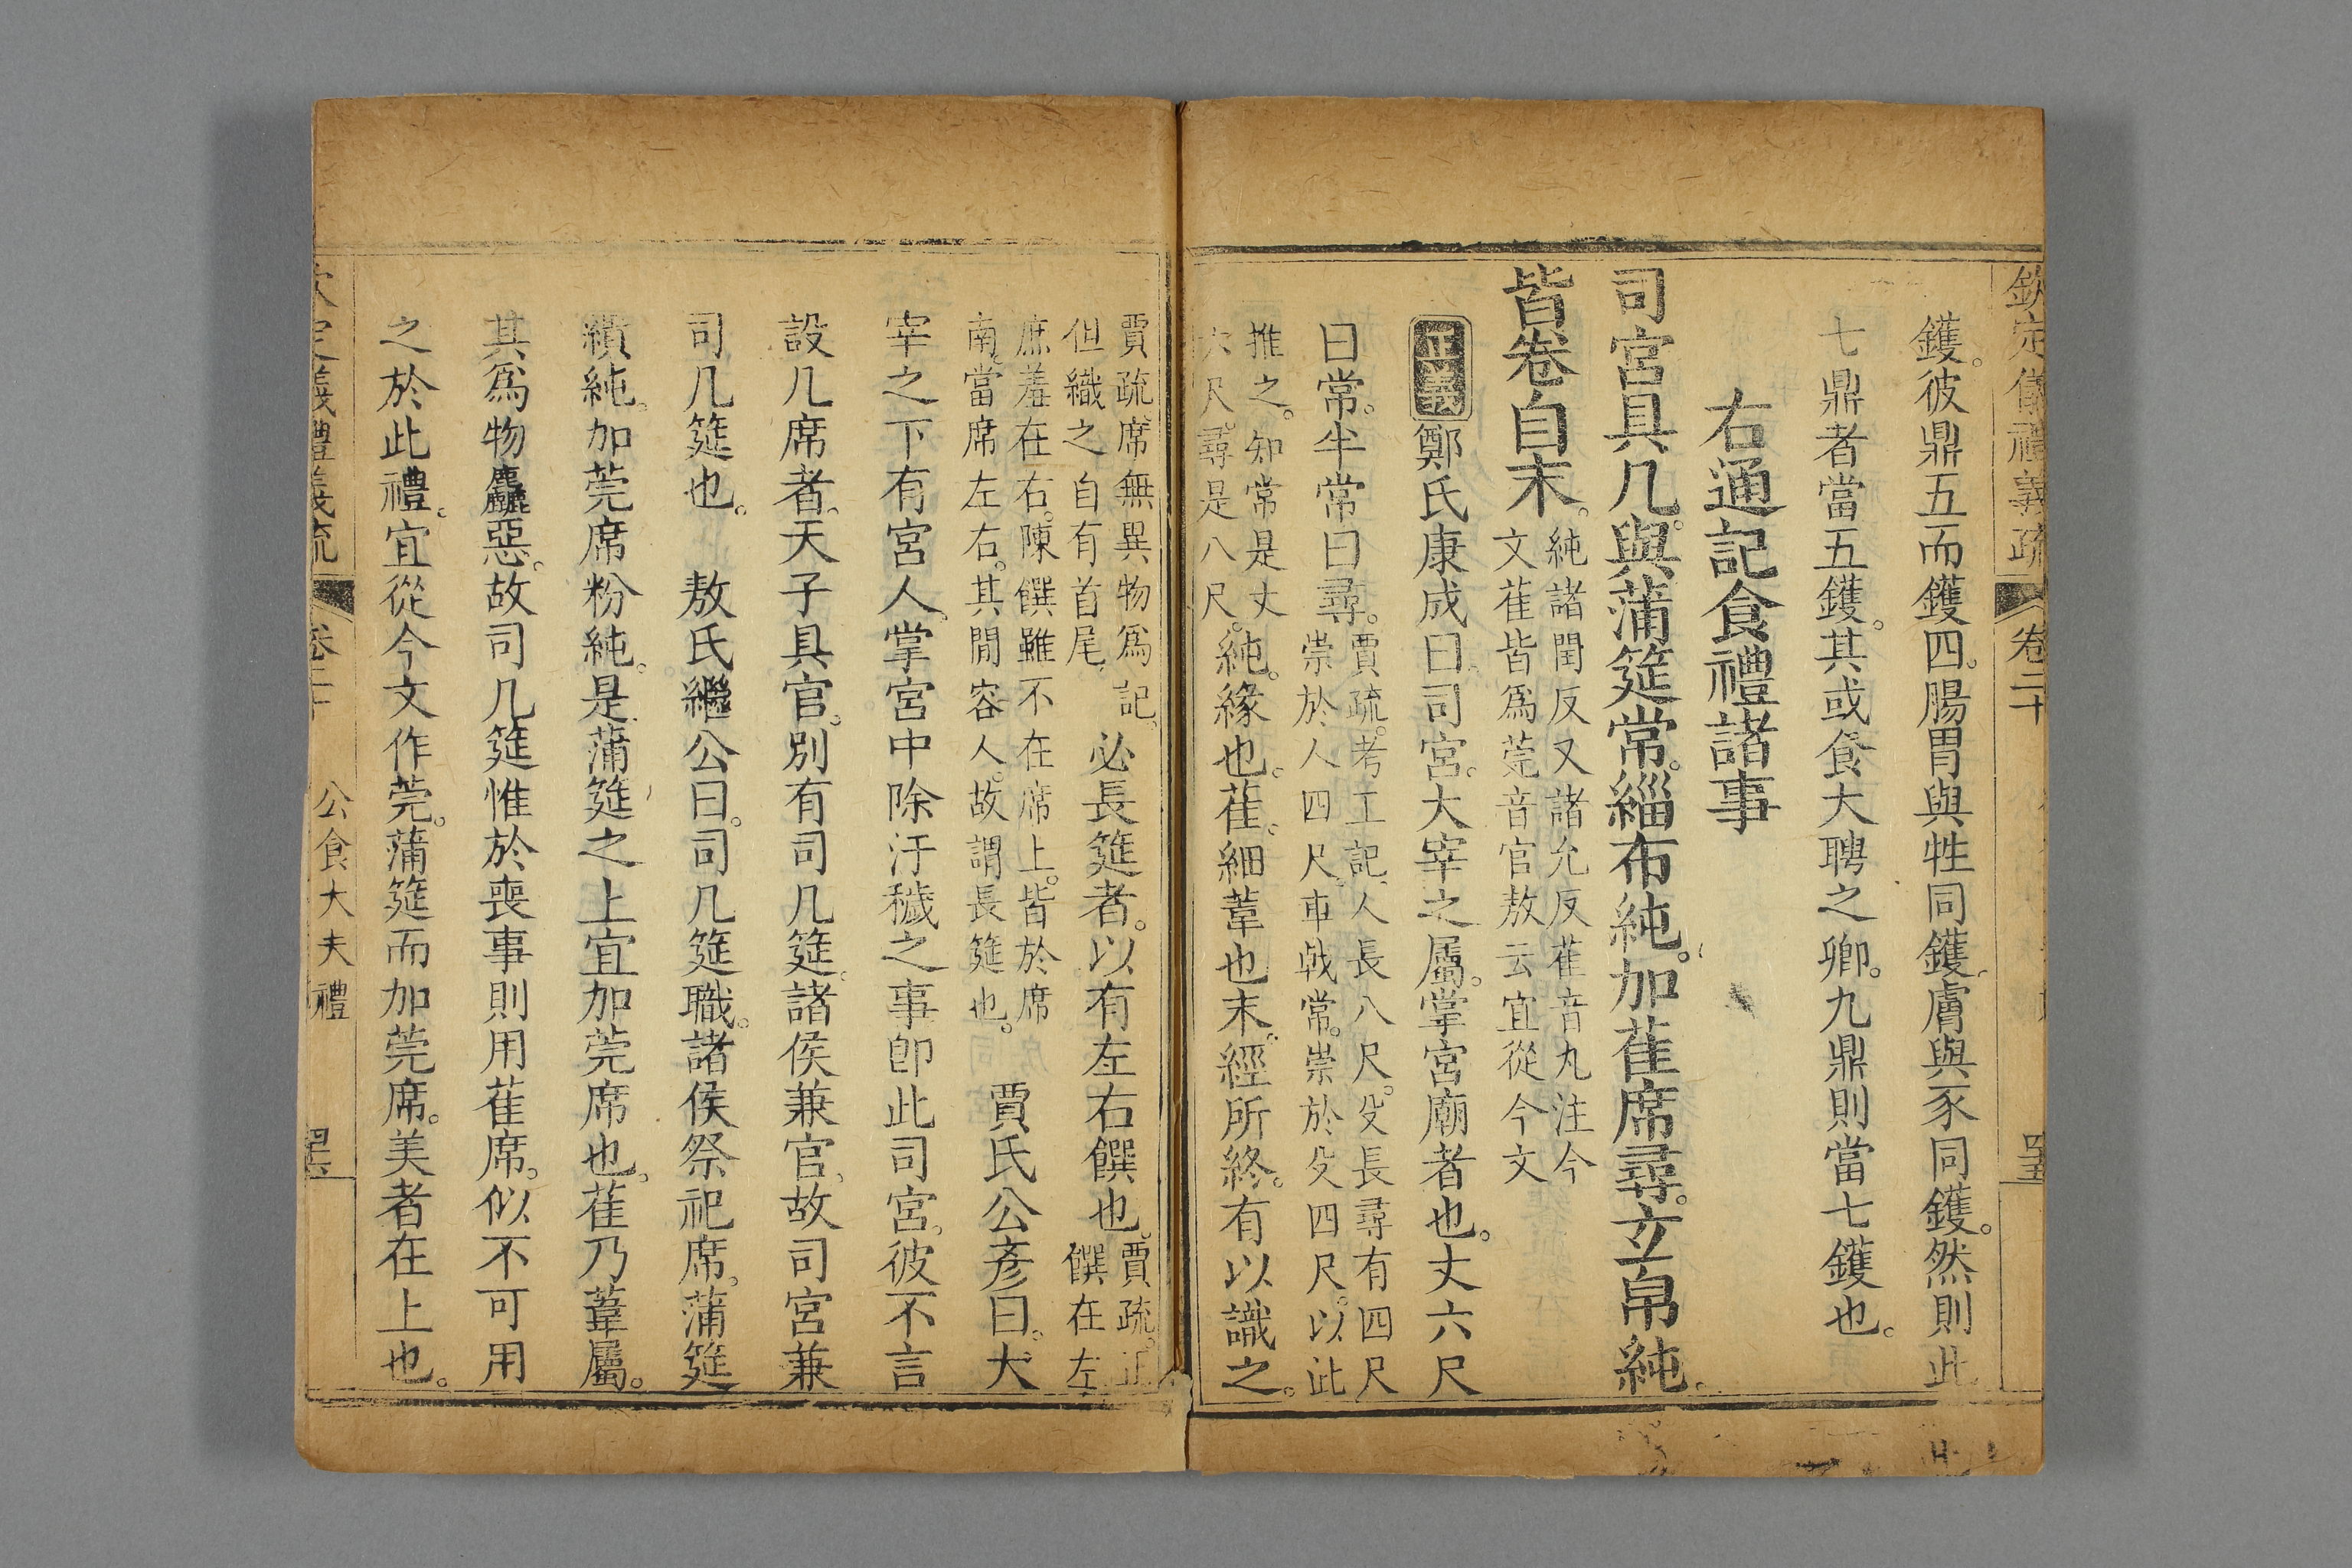 欽定儀禮義疏 卷二十
鑊。彼鼎五而鑊四。腸胃與牲同鑊。膚與豕同鑊。然則此
七鼎者當五鑊。其或食大聘之卿。九鼎則當七鑊也。
右通記食禮諸事
司宮具几。與蒲筵常。緇布純。加萑席尋。立帛純。
皆卷自末。
純諸閏反又諸允反萑音丸注今
文萑皆爲莞音官敖云宜從今文
正義鄭氏康成曰。司宮。大宰之屬。掌宮廟者也。丈六尺
曰常。半常曰尋。
賈疏。考工記。人長八尺。殳長尋有四尺
崇於人四尺。車戟常。崇於殳四尺。以此
推之。知常是丈
六尺。尋是八尺。
純。緣也。萑。細葦也。末。經所終。有以識之。
賈疏。席無異物爲記。
但織之自有首尾。
必長筵者。以有左右饌也。
賈疏。正
饌在左
庶羞在右。陳饌雖不在席上。皆於席
南。當席左右。其間容人。故謂長筵也。
賈氏公彥曰。大
宰之下有宮人。掌宮中除汙穢之事。卽此司宮。彼不言
設几席者。天子具官。別有司几筵。諸侯兼官。故司宮兼
司几筵也。 敖氏繼公曰。司几筵職。諸侯祭祀席。蒲筵
繢純。加莞席粉純。是蒲筵之上宜加莞席也。萑乃葦屬。
其爲物麤惡。故司几筵惟於喪事則用萑席。似不可用
之於此禮。宜從今文作莞。蒲筵而加莞席。美者在上也。
欽定儀禮義疏 卷二十 公食大夫禮